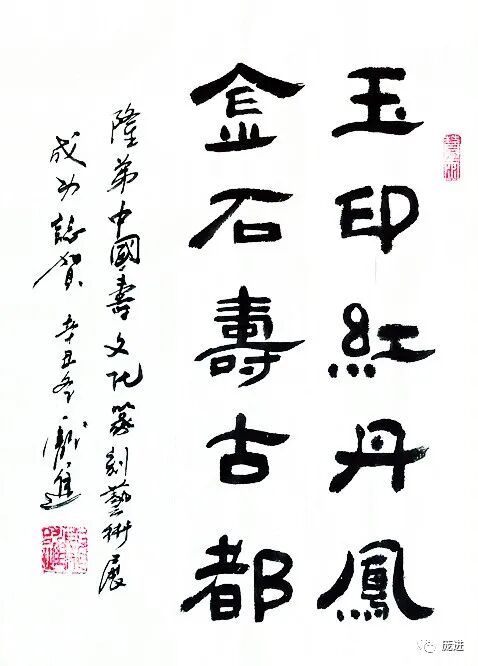 玉印紅丹鳳
金石壽古都
隆弟中國壽文化篆刻藝術展
成功誌賀 辛丑冬 龐進
庞进